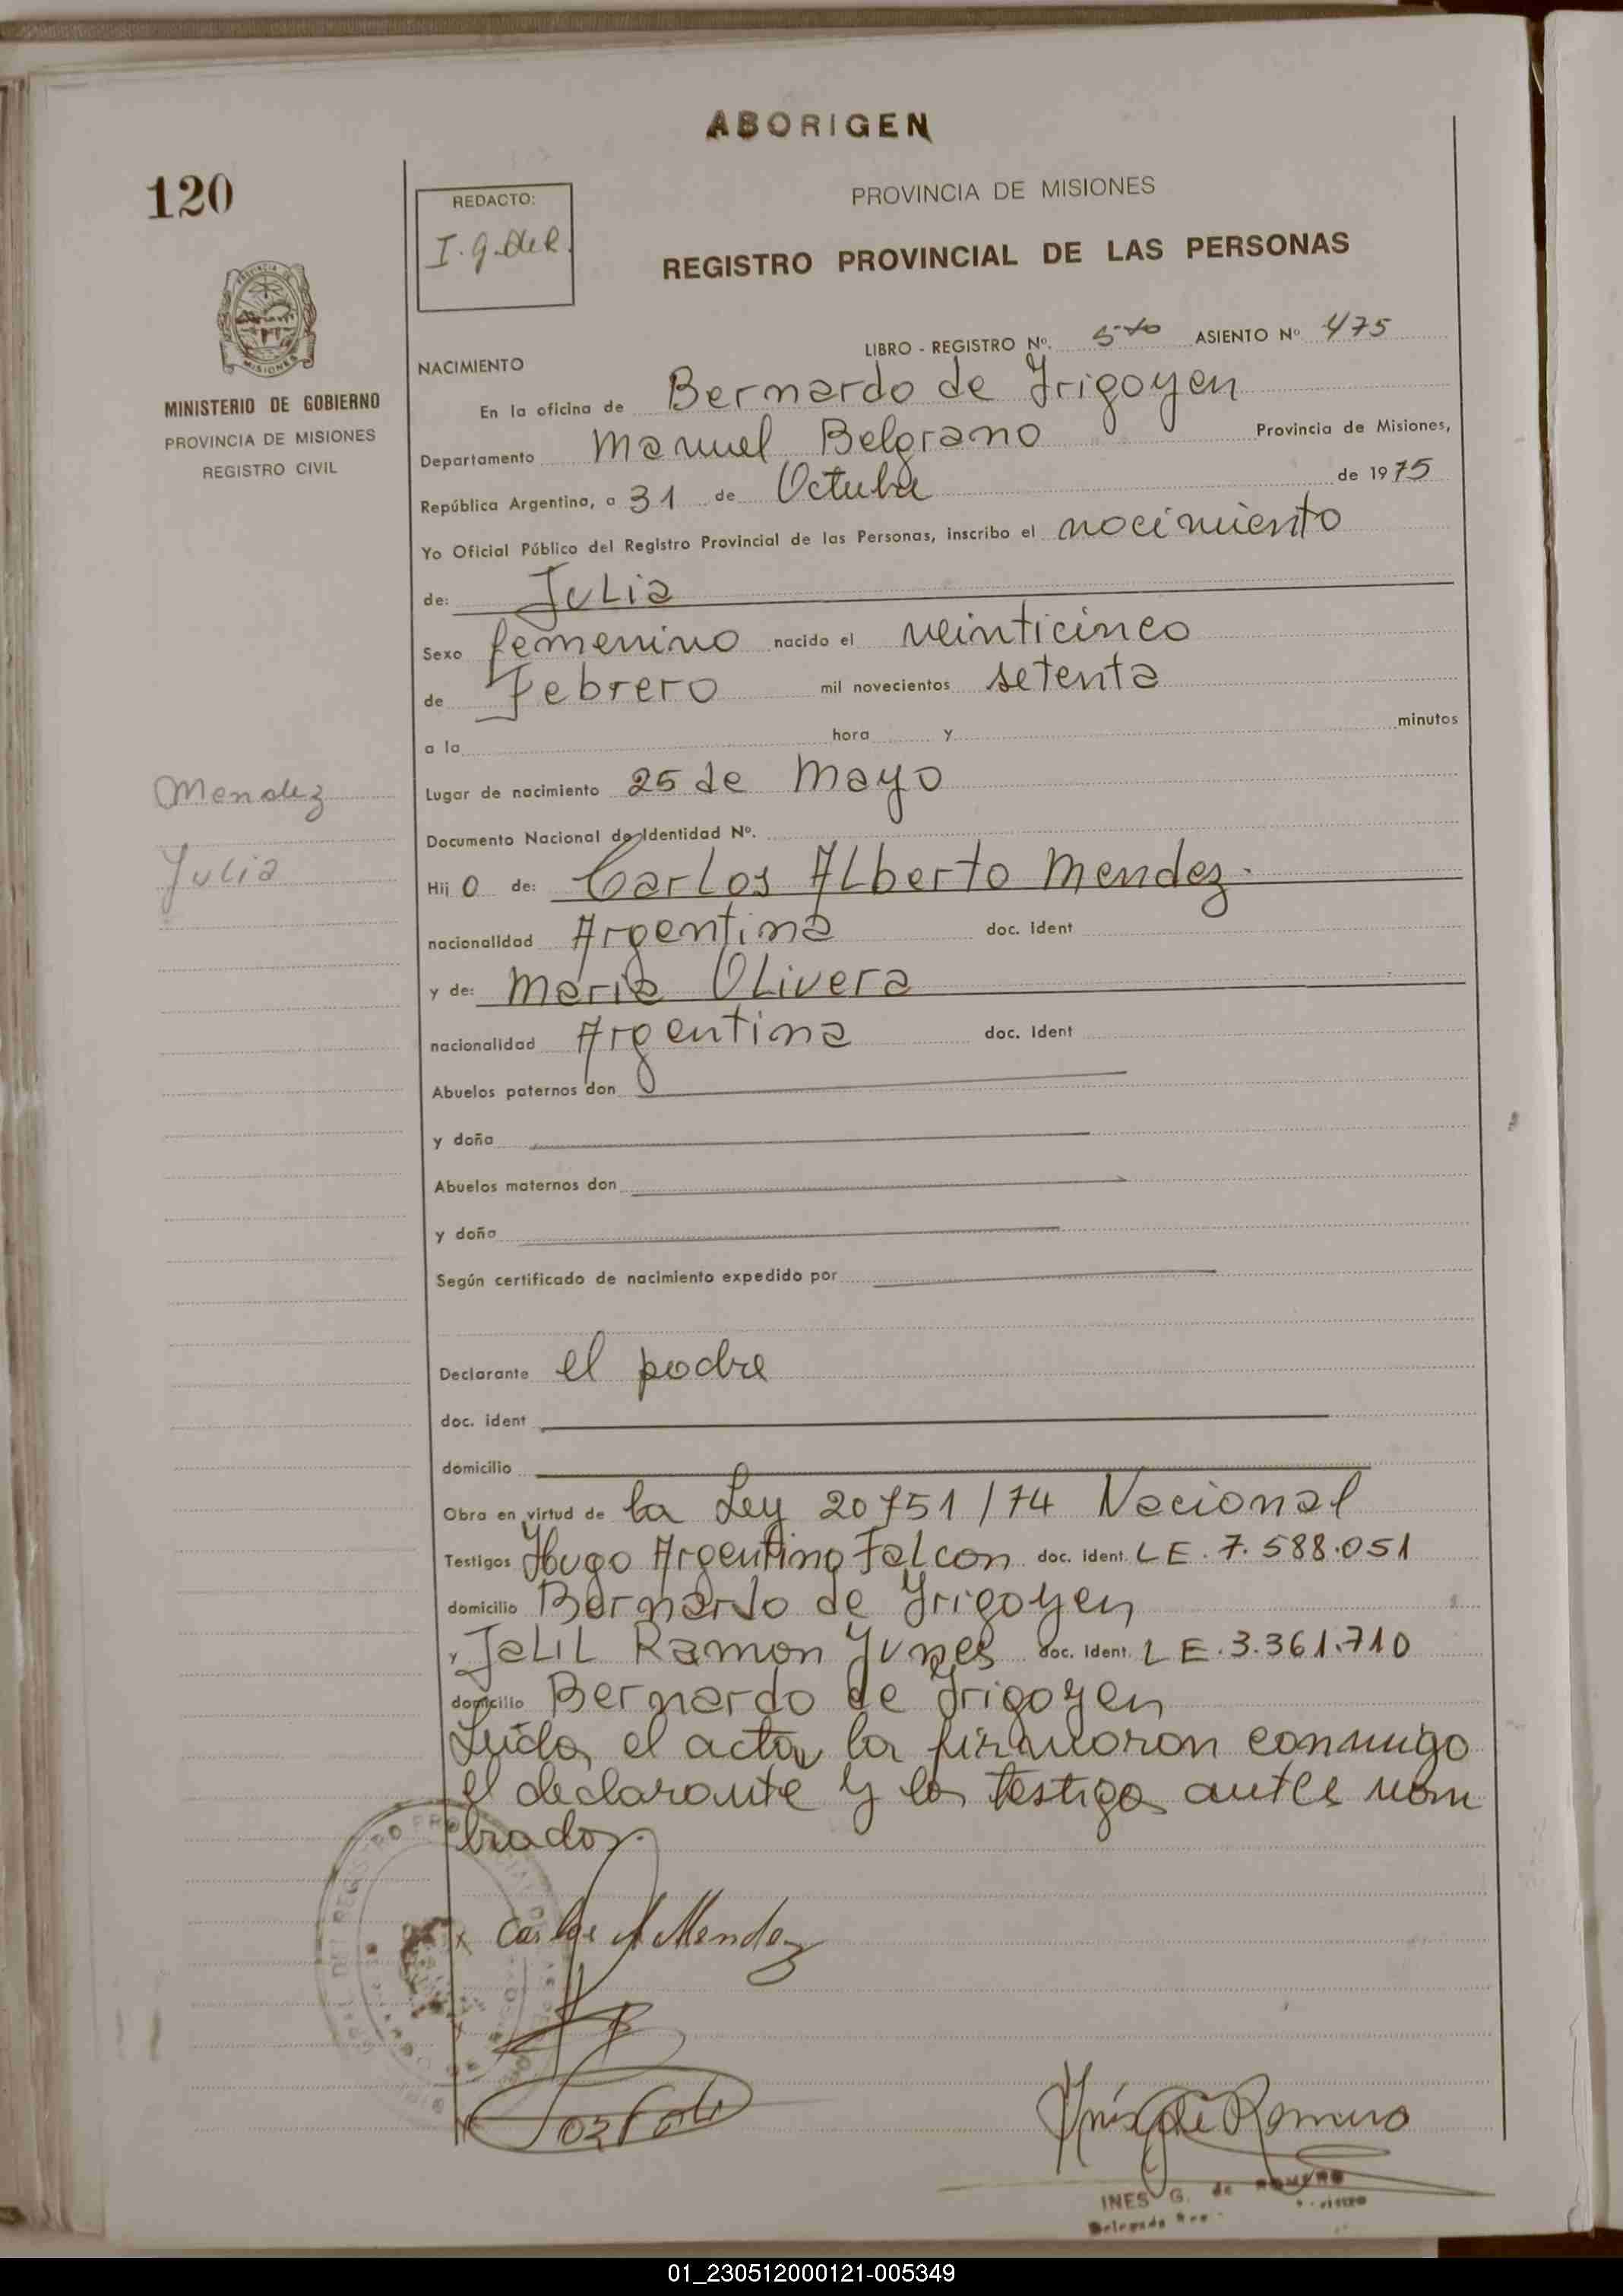 ABORIGEN
120
REDACTO:
I. G. de R.
PROVINCIA DE MISIONES
REGISTRO PROVINCIAL DE LAS PERSONAS
MISIONES
MINISTERIO DE GOBIERNO
PROVINCIA DE MISIONES
REGISTRO CIVIL
LIBRO - REGISTRO Nº. 5to ASIENTO Nº 475
NACIMIENTO
En la oficina de Bernardo de Yrigoyen
Departamento Manuel Belgrano Provincia de Misiones,
República Argentina, a 31 de Octubre de 1975
Yo Oficial Público del Registro Provincial de las Personas, inscribo el nacimiento
de: Julia
Sexo femenino nacido el veinticinco
de Febrero mil novecientos setenta
a la hora y minutos
Lugar de nacimiento 25 de Mayo
Mendez
Julia
Documento Nacional de Identidad Nº.
Hij o de: Carlos Alberto Mendez.
nacionalidad Argentina doc. ident
y de: Maria Olivera
nacionalidad Argentina doc. ident
Abuelos paternos don
y doña
Abuelos maternos don
y doña
Según certificado de nacimiento expedido por
Declarante el padre
doc. ident
domicilio
Obra en virtud de la Ley 20751/74 Nacional
Testigos Hugo Argentino Falcon doc. ident. LE. 7.588.051
domicilio Bernardo de Yrigoyen
y Jalil Ramon Yunes doc. ident. LE. 3.361.710
domicilio Bernardo de Yrigoyen
Leida el acta la firmaron conmigo
el declarante y los testigos antes nom
brados.
Carlos A Mendez
Inés G de Romero
INES G. de ROMERO
01_230512000121-005349